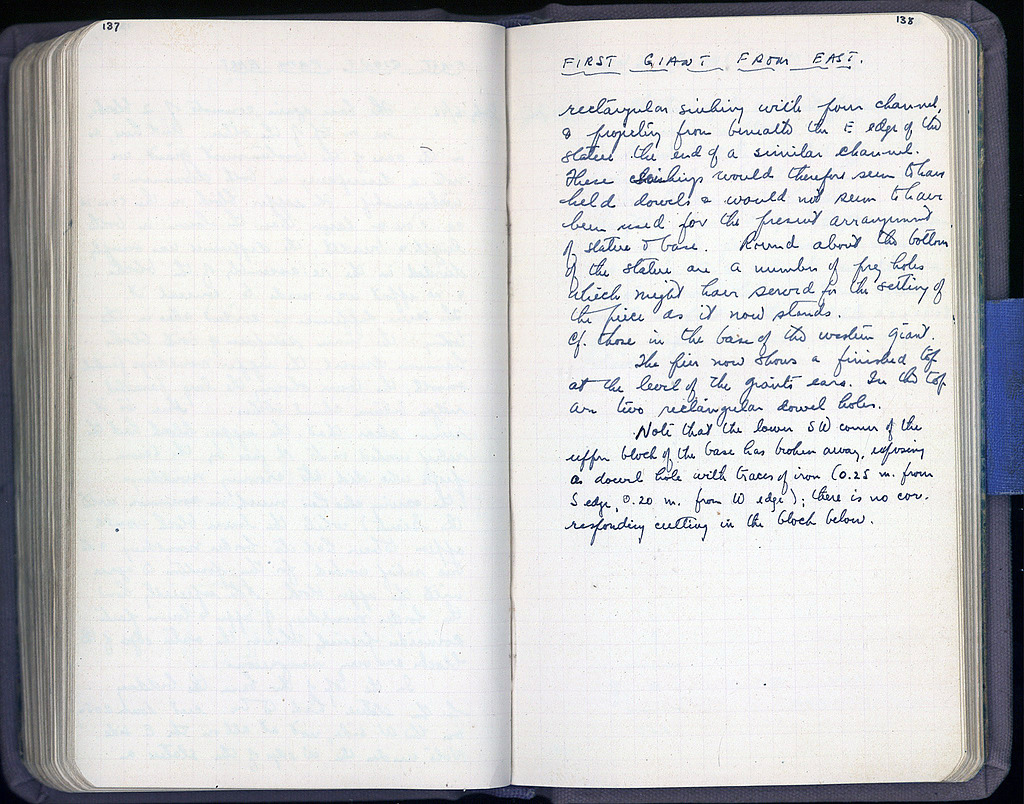 137
138
FIRST GIANT FROM EAST.
rectangular sinking with pour channel,
& projecting from beneath the E edge of the
statue the end of a similar channel.
These sinkings would therefore seem to have
held dowels & would not seem to have
been used for the present arrangement
of statue & base. Round about the bottom
of the statue are a number of pry holes
which might have served for the setting of
the piece as it now stands.
Cf. those in the base of the western Giant.
The pier now shows a finished top
at the level of the giants ears. In this top
are two rectangular dowel holes.
Note that the lower SW corner of the
upper block of the base has broken away, exposing
a dowel hole with traces of iron (0.25 m. from
S edge, 0.20 m. from W edge); there is no cor-
responding cutting in the block below.